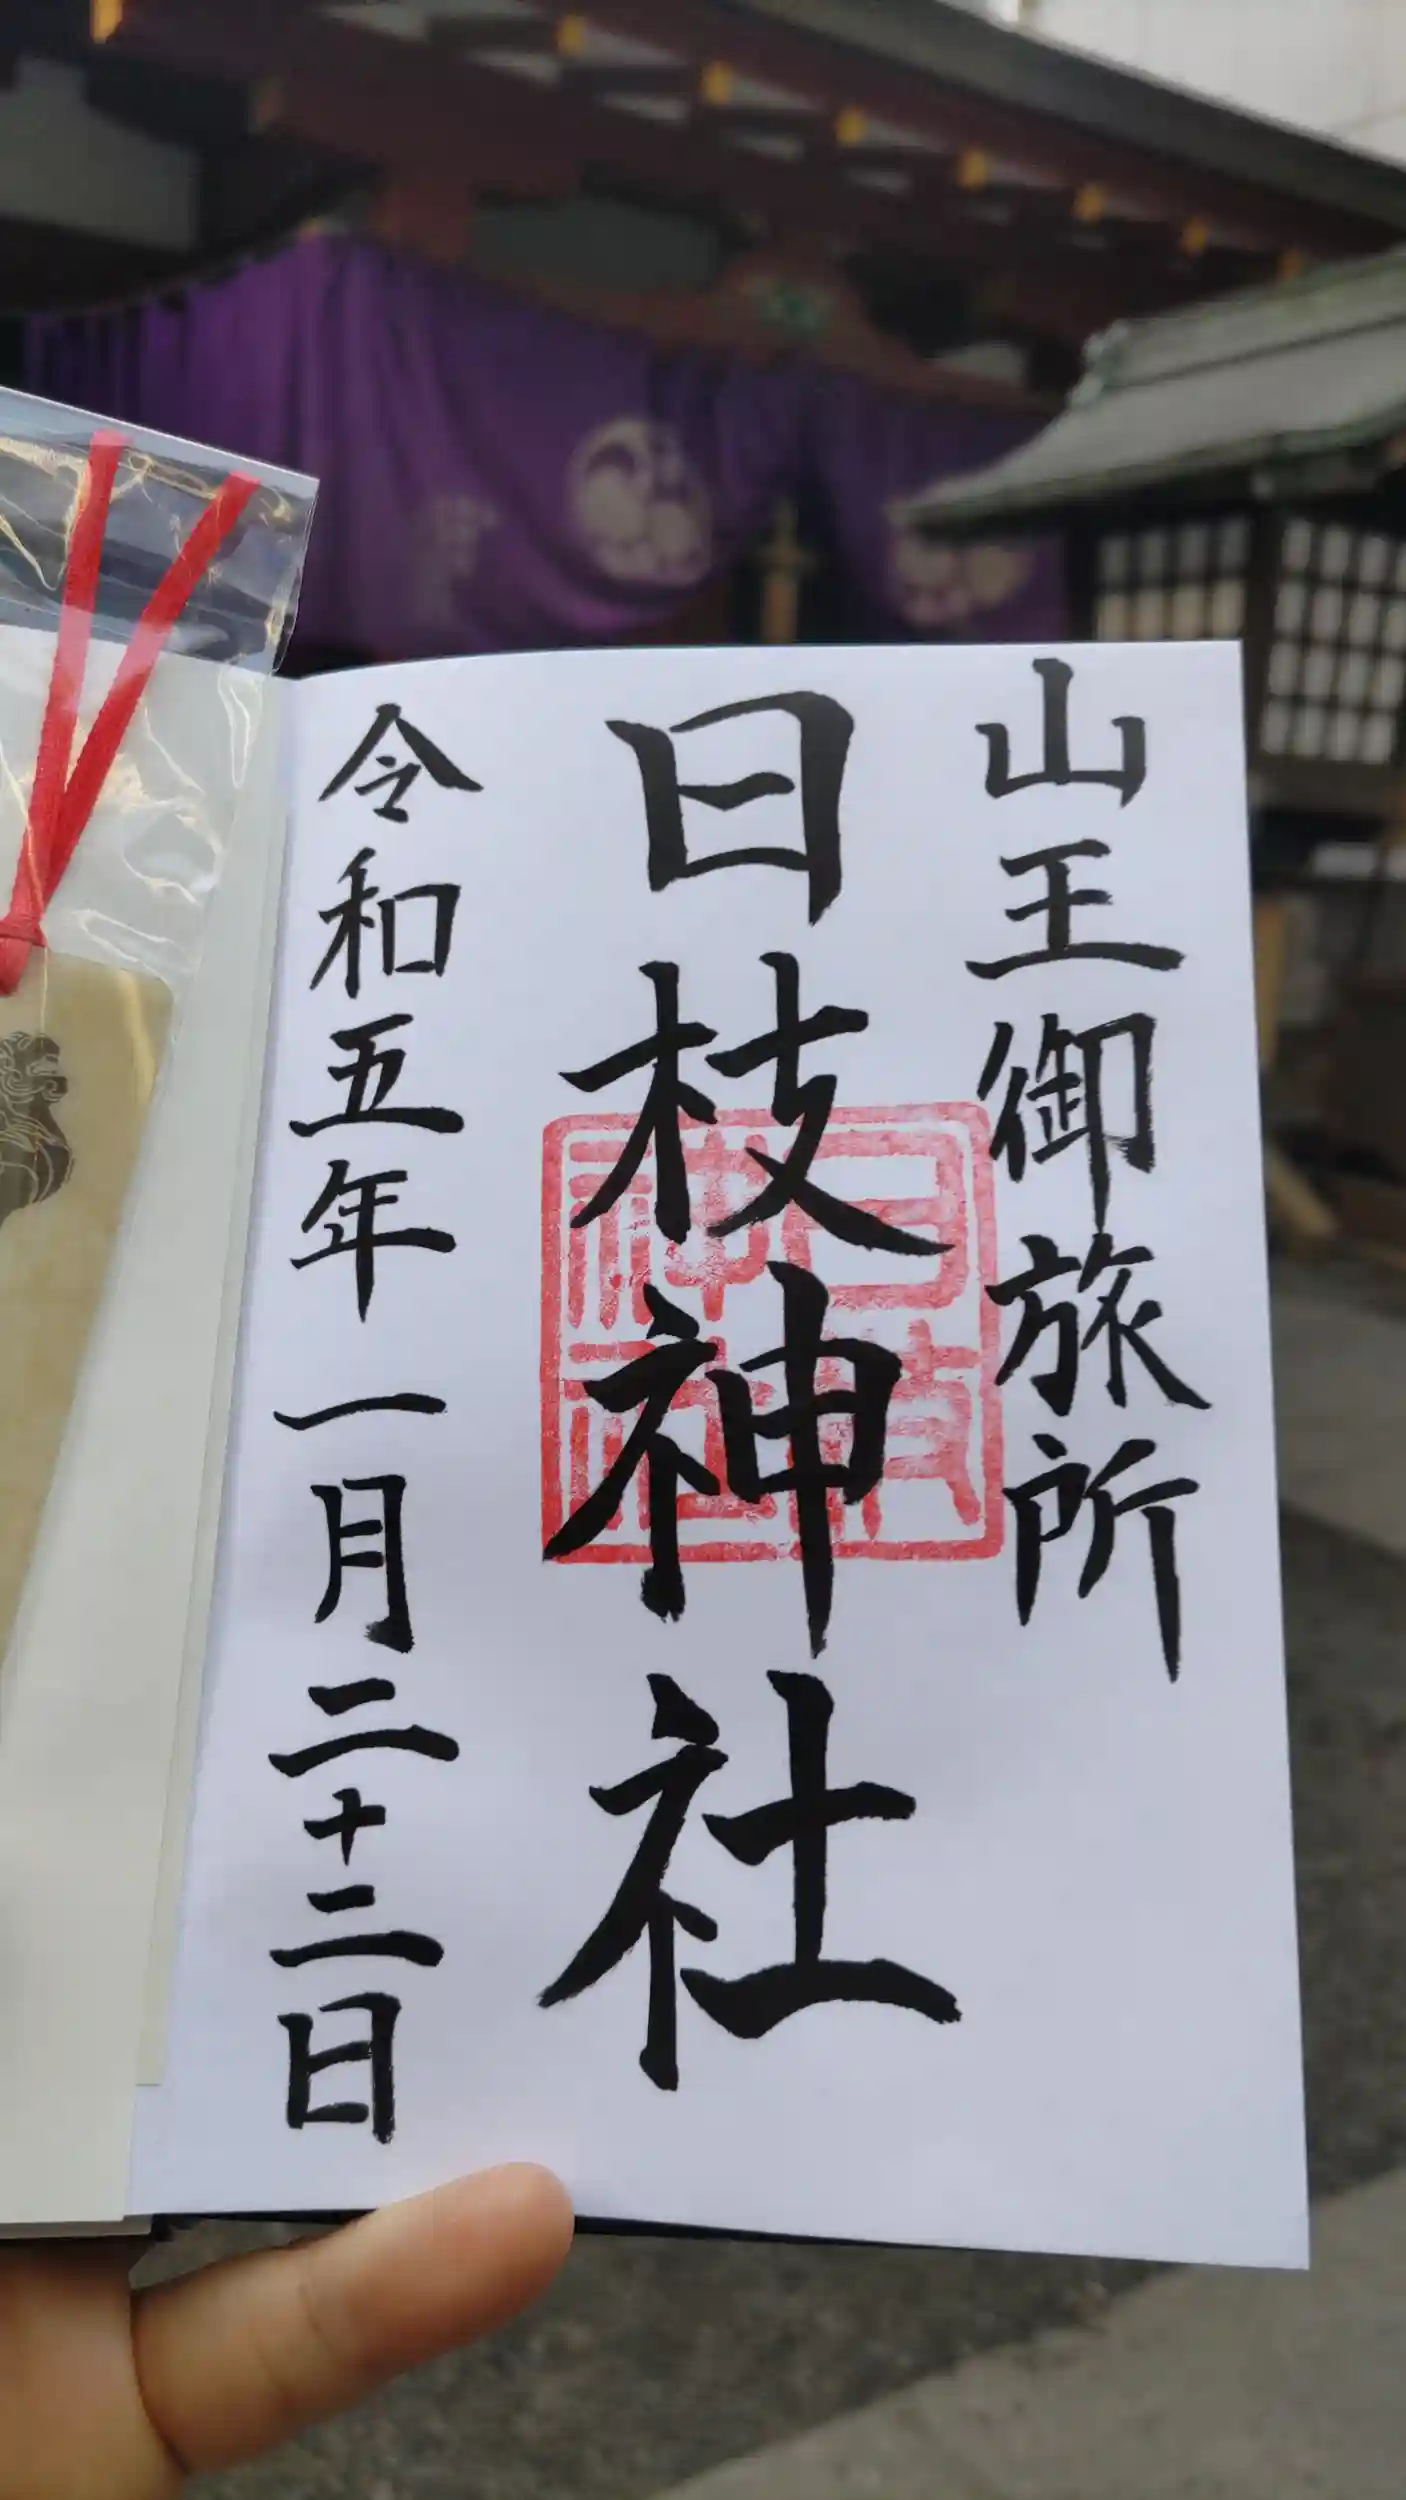 山王御旅所
日枝神社
令和五年一月二十二日
日枝
神社